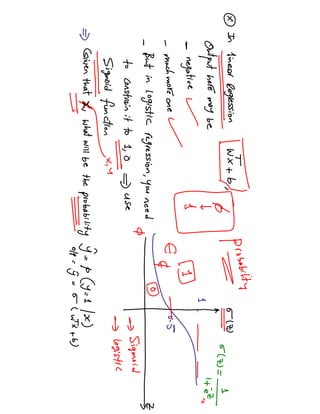 ⊗ In linear Regression WᵀX + b,
Output here may be
- negative ✓
- much more one ✓
- But in logistic regression, you need
to constrain it to 1, 0 ⇒ use
Sigmoid function
x, y
⇒ Given that X, what will be the probability
ŷ = P(y=1|x)
ŷ = σ(WᵀX + b)
Probability
σ(z)
σ(z) = 1 / (1 + e⁻ᶻ)
1
0.5
1
0
∈
→ Sigmoid
→ logistic
z